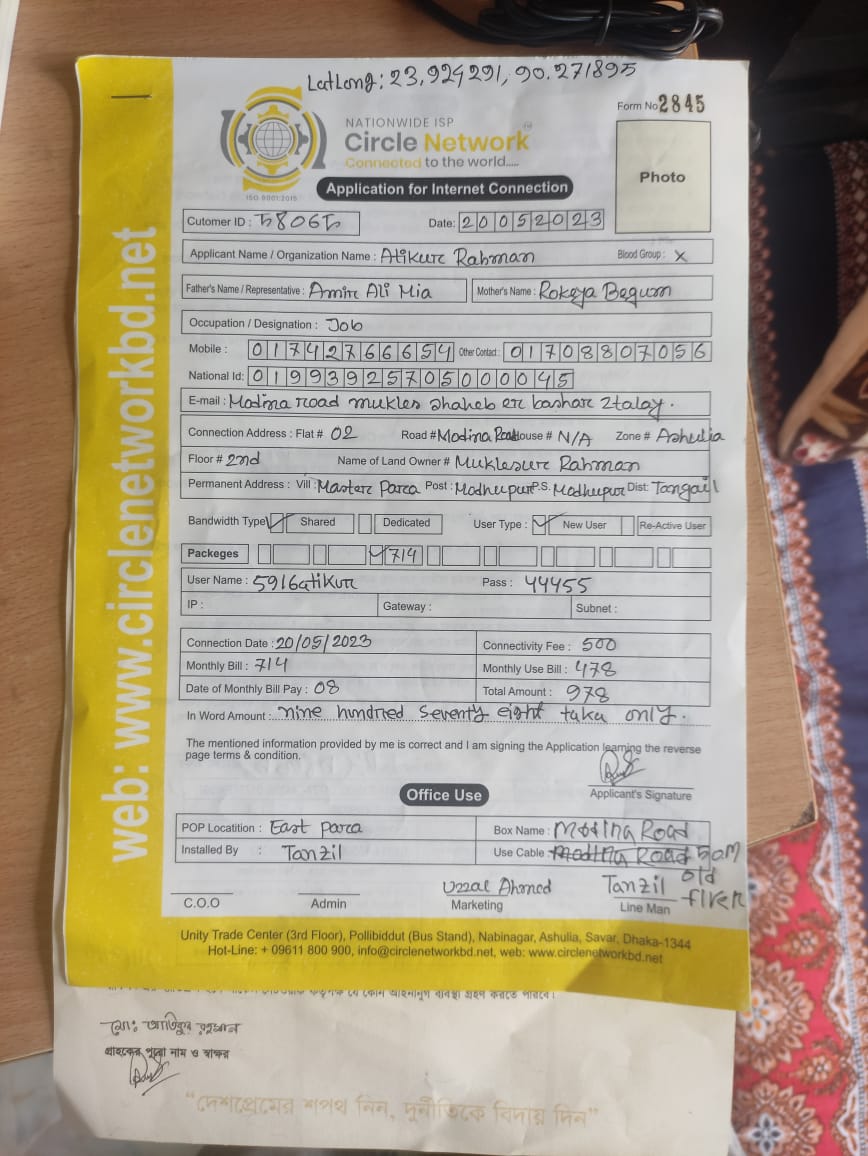 LatLong: 23.924291, 90.271895
Form No 2845
NATIONWIDE ISP
Circle Network
Connected to the world.....
ISO 9001:2015
Application for Internet Connection
Photo
Cutomer ID :
Date: 20052023
Applicant Name / Organization Name : Atikur Rahman Blood Group : X
Father's Name / Representative : Amir Ali Mia Mother's Name : Rokeya Begum
Occupation / Designation : Job
Mobile : 01742766654 Other Contact : 01708807056
National Id: 01993925705000045
E-mail : Modina road mukles shaheb er bashar 2talay.
Connection Address : Flat # 02 Road # Modina Road House # N/A Zone # Ashulia
Floor # 2nd Name of Land Owner # Muklesur Rahman
Permanent Address : Vill : Master Para Post : Modhupur P.S. Modhupur Dist: Tangail
Bandwidth Type Shared Dedicated User Type : New User Re-Active User
Packeges 714
User Name : 5916atikur Pass : 44455
IP : Gateway : Subnet :
Connection Date : 20/05/2023 Connectivity Fee : 500
Monthly Bill : 714 Monthly Use Bill : 478
Date of Monthly Bill Pay : 08 Total Amount : 978
In Word Amount : nine hundred seventy eight taka only.
The mentioned information provided by me is correct and I am signing the Application learning the reverse
page terms & condition.
Applicant's Signature
Office Use
POP Locatition : East Para Box Name : Modina Road
Installed By : Tanzil Use Cable : Modina Road 50M
old
C.O.O Admin Uzzal Ahmed Tanzil
Marketing Line Man
Unity Trade Center (3rd Floor), Pollibiddut (Bus Stand), Nabinagar, Ashulia, Savar, Dhaka-1344
Hot-Line: + 09611 800 900, info@circlenetworkbd.net, web: www.circlenetworkbd.net
web: www.circlenetworkbd.net
মোঃ আতিকুর রহমান
গ্রাহকের পুরো নাম ও স্বাক্ষর
“দেশপ্রেমের শপথ নিন, দুর্নীতিকে বিদায় দিন”